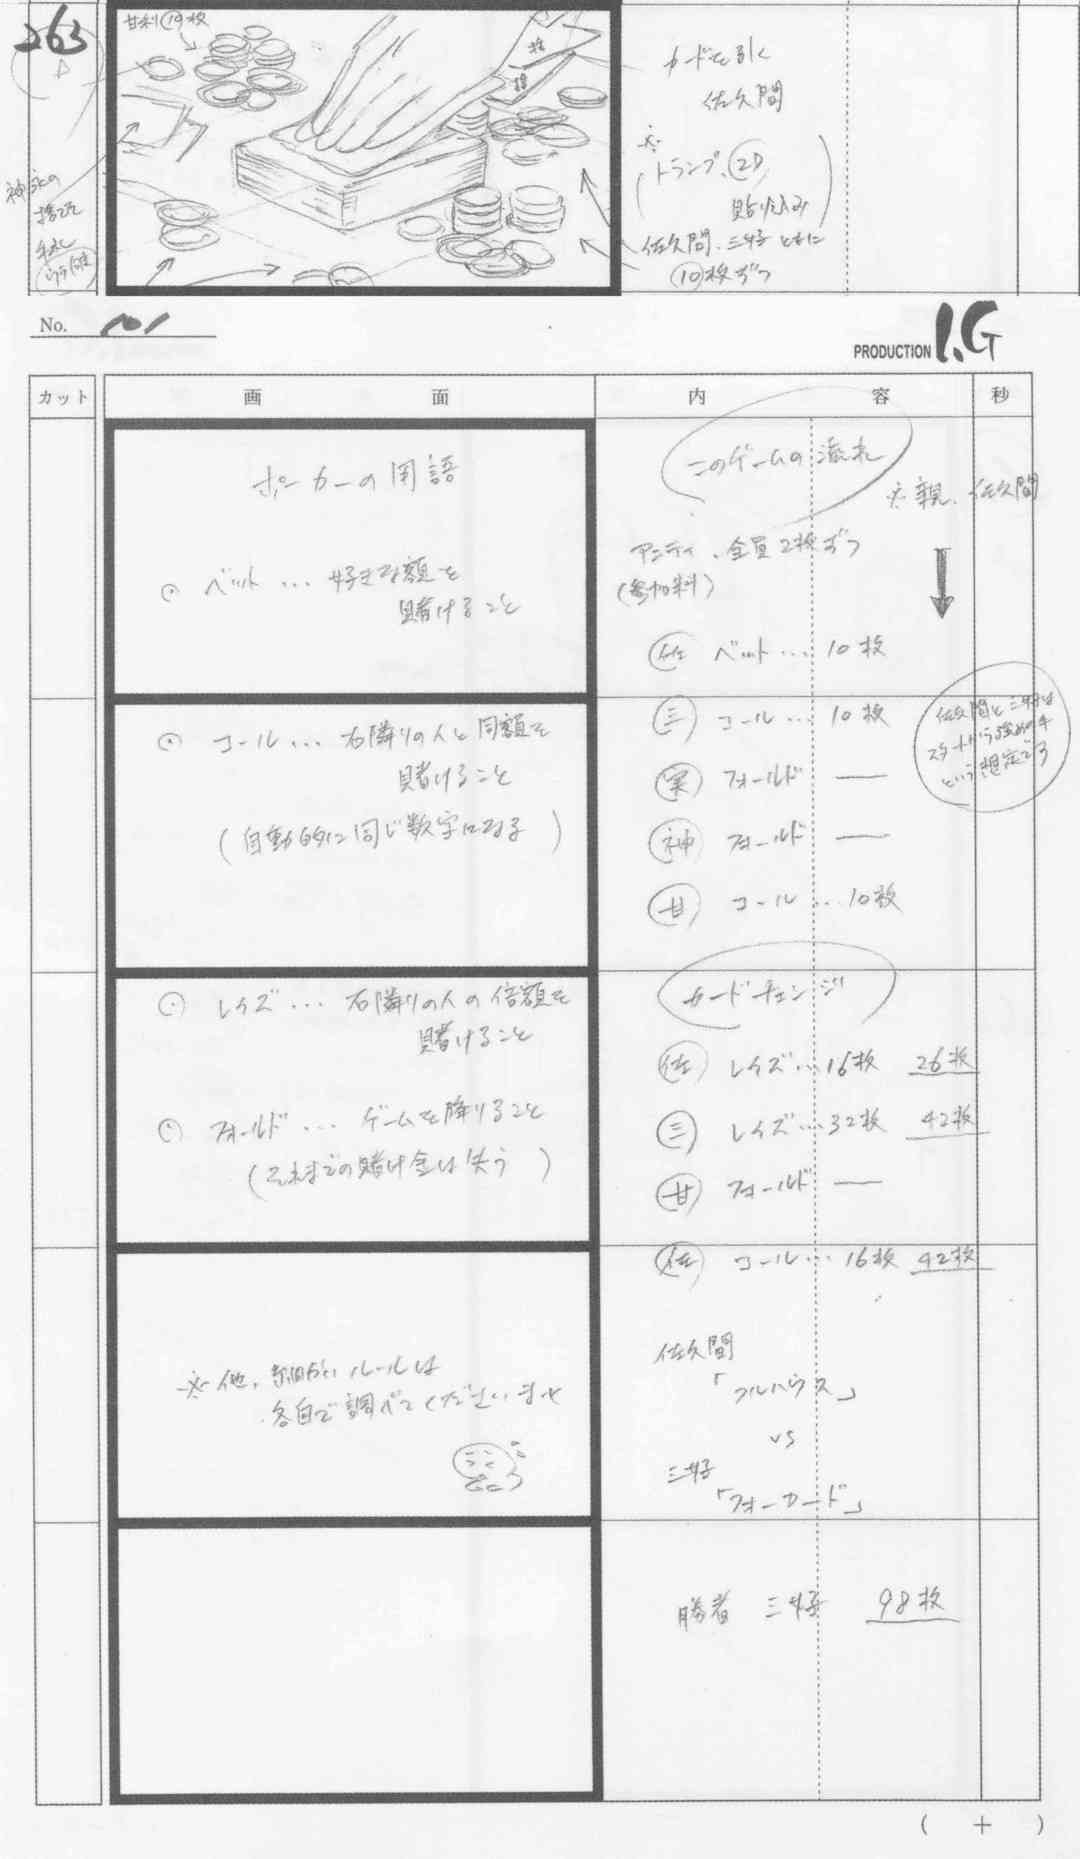 263
A
甘利⑲枚
捨
捨
神永の
捨てた
手札
ウラ向き
カードを引く
佐久間
※
トランプ、2D
貼り込み
佐久間、三好ともに
⑩枚ずつ
No. 101
PRODUCTION I.G
カット
画面
内容
秒
ポーカーの用語
⊙ ベット … 好きな額を
賭けること
このゲームの流れ
※親、佐久間
アンティ、全員2枚ずつ
(参加料)
佐 ベット … 10枚
⊙ コール … 右隣りの人と同額を
賭けること
(自動的に同じ数字になる)
三 コール … 10枚
実 フォールド ―
神 フォールド ―
甘 コール … 10枚
佐久間と三好は
スタートから強めの手
という想定です
⊙ レイズ … 右隣りの人の倍額を
賭けること
⊙ フォールド … ゲームを降りること
(それまでの賭け金は失う)
カードチェンジ
佐 レイズ … 16枚 26枚
三 レイズ … 32枚 42枚
甘 フォールド ―
※他、細かいルールは
各自で調べてくださいませ
佐 コール … 16枚 42枚
佐久間
「フルハウス」
vs
三好
「フォーカード」
勝者 三好 98枚
( + )